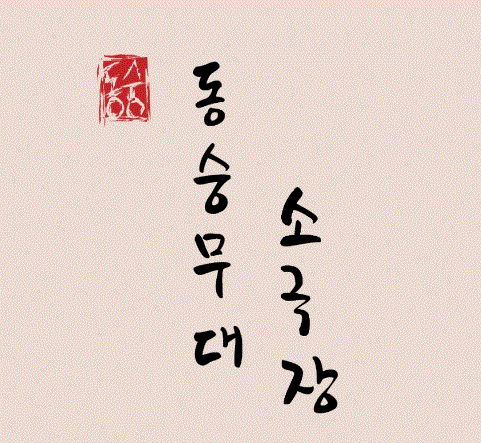 동숭무대
소극장